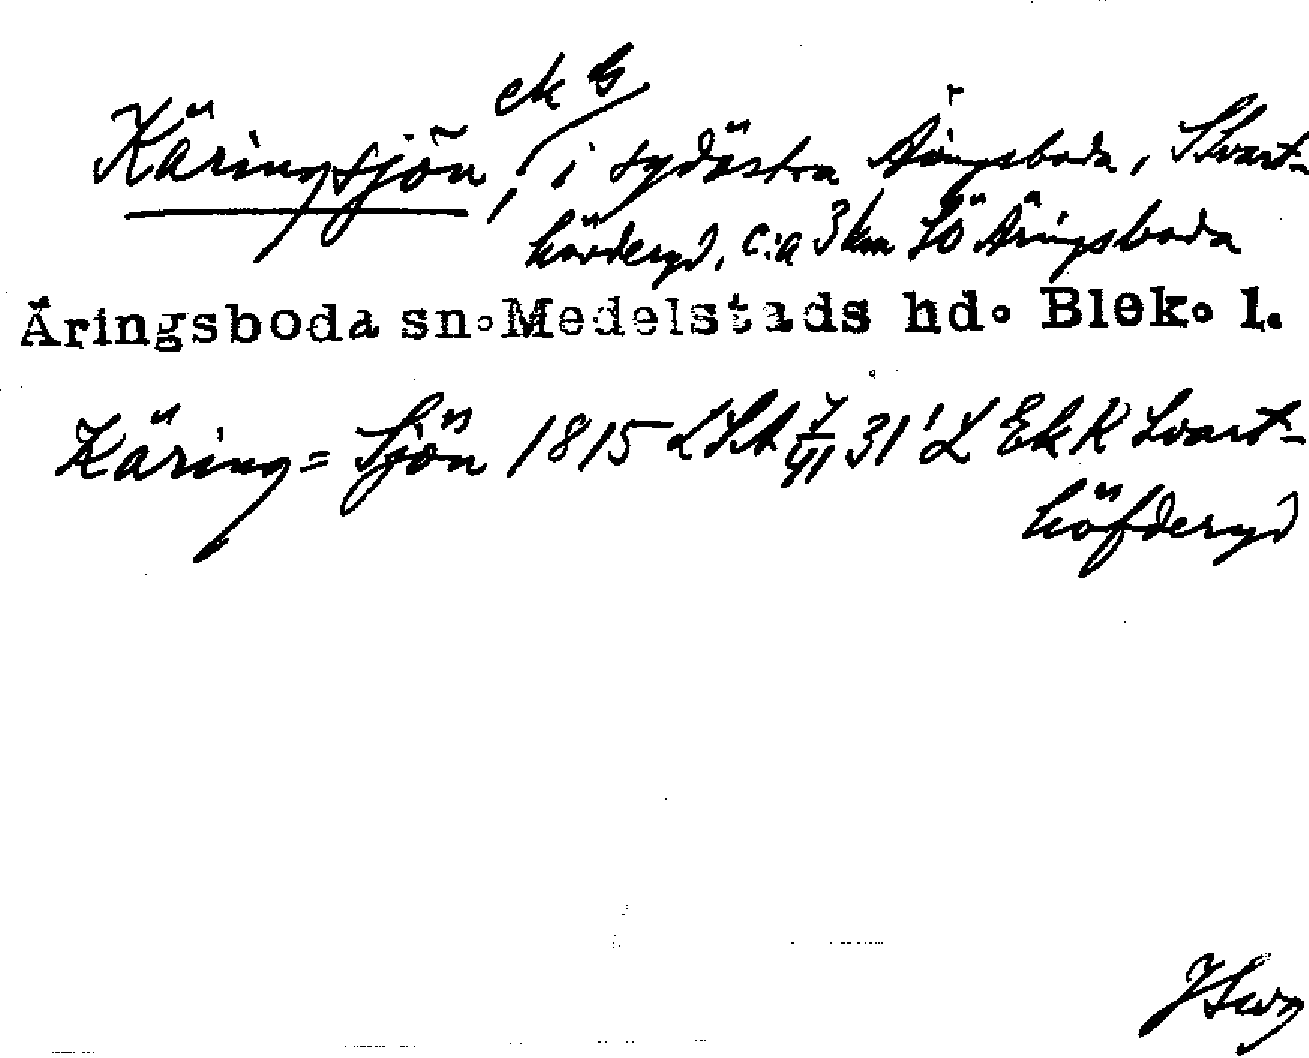 Käringsjön, i sydöstra Åringsboda, Svart-
ek b
hövderyd, c:a 3 km SÖ Åringsboda
Åringsboda sn. Medelstads hd. Blek. l.
Käring= Sjön 1815 LSA 31' L Ek K Svart-
höfderyd